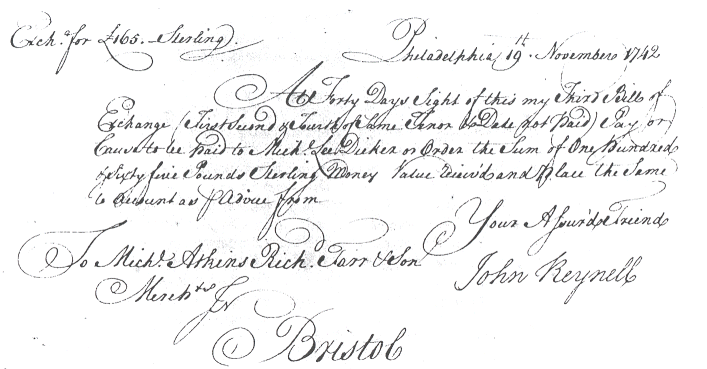 Exch.ᵃ for £165. Sterling.
Philadelphia 19ᵗʰ. November 1742
At Forty Days Sight of this my Third Bill of
Exchange (First Second & Fourth of Same Tenor & Date not Paid) Pay or
Cause to be paid to Mich.ˡ Lee Dicker or Order the Sum of One Hundred
& Sixty five Pounds Sterling Money Value Receiv'd and Place the Same
to Account as ⅌ Advice from
Your Assur'd Friend
John Reynell
To Mich.ˡ Atkens Rich.ᵈ Farr & Son
Merch.ᵗˢ In
Bristol